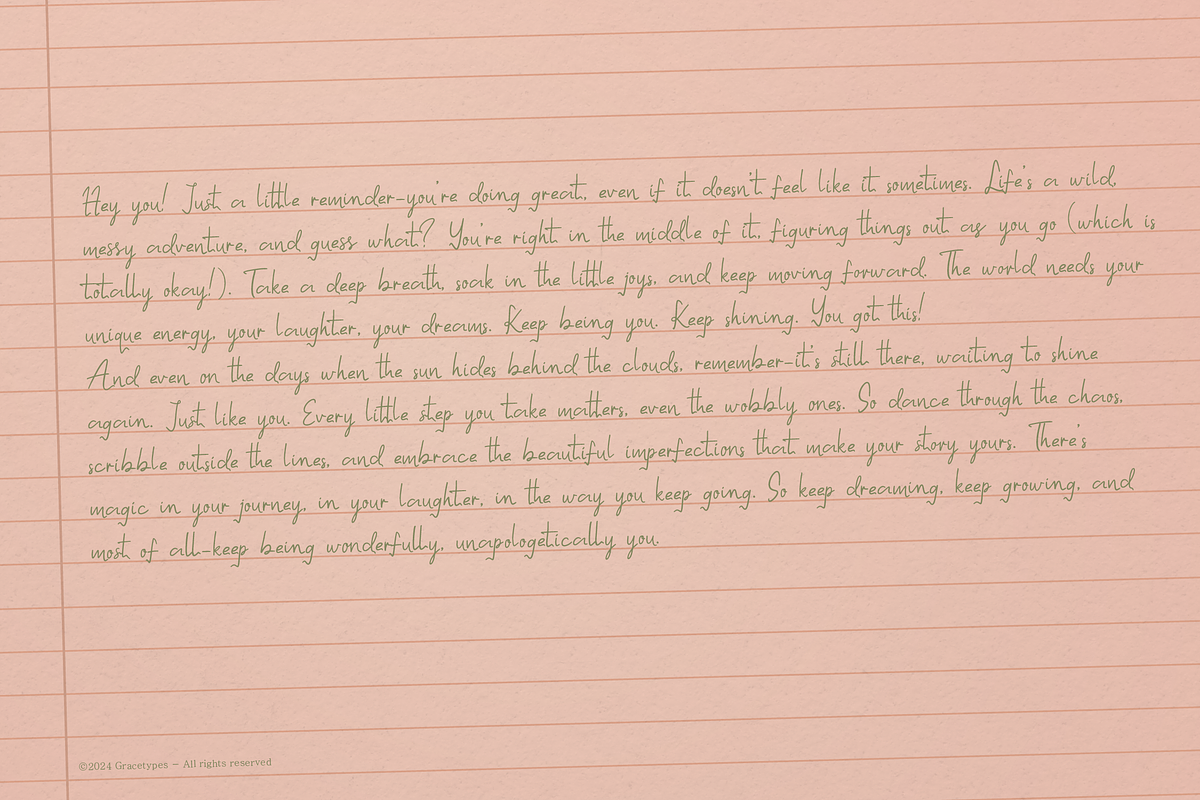 Hey you! Just a little reminder-you're doing great, even if it doesn't feel like it sometimes. Life's a wild,
messy adventure, and guess what? You're right in the middle of it, figuring things out as you go (which is
totally okay!). Take a deep breath, soak in the little joys, and keep moving forward. The world needs your
unique energy, your laughter, your dreams. Keep being you. Keep shining. You got this!
And even on the days when the sun hides behind the clouds, remember-it's still there, waiting to shine
again. Just like you. Every little step you take matters, even the wobbly ones. So dance through the chaos,
scribble outside the lines, and embrace the beautiful imperfections that make your story yours. There's
magic in your journey, in your laughter, in the way you keep going. So keep dreaming, keep growing, and
most of all-keep being wonderfully, unapologetically you.
©2024 Gracetypes — All rights reserved